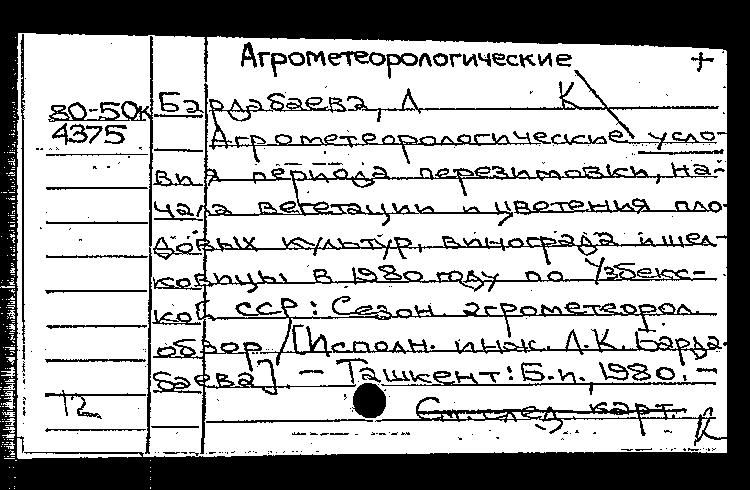 Агрометеорологические +
80-50к Бардабаева, Л К
4375 Агрометеорологические усло-
вия периода перезимовки, на-
чала вегетации и цветения пло-
довых культур, винограда и шел-
ковицы в 1980 году по Узбекс-
кой ССР: Сезон. агрометеорол.
обзор / [Исполн. инж. Л.К. Барда-
баева] – Ташкент: Б.и., 1980. –
12 См. след. карт.
К